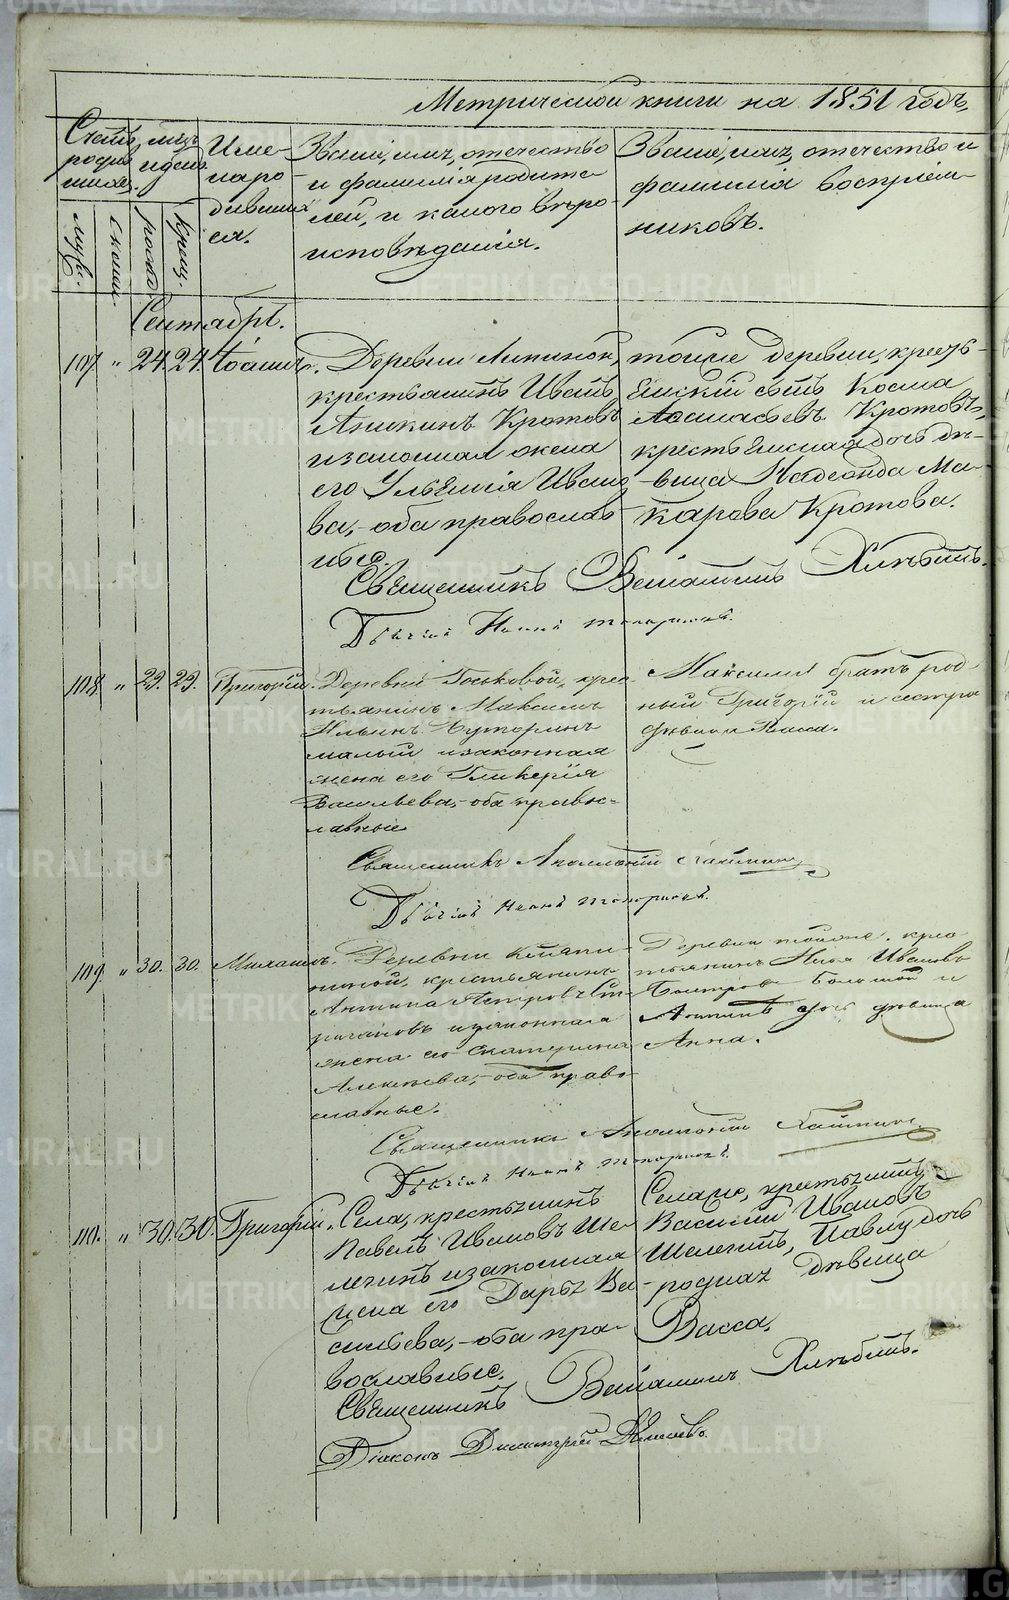 Метрической книги на 1851 годъ,
Счетъ родившихся.
муж.
женск.
мцъ и день
рожд.
крещ.
Имена родившихся.
Званіе, имя, отечество
и фамилія родите-
лей, и какого вѣро-
исповѣданія.
Званіе, имя, отечество и
фамилія воспріем-
никовъ.
Сентябрь.
107. " 24. 24. Іоаннъ.
Деревни
крестьянинъ Иванъ
Аникинъ Кротовъ
и законная жена
его Ульянія Ивано-
ва, оба православ-
ные.
тойже деревни, кресть-
янскій сынъ Косма
Кротовъ,
крестьянская дочь дѣ-
вица Надежда Ма-
карова Кротова.
Священникъ Веніаминъ Хлѣбинъ.
Дьячекъ Иванъ Топорковъ.
108. " 29. 29. Григорій.
Деревни Гоьковой, крес-
тьянинъ Максимъ
Ильинъ
малый и законная
жена его Гликерія
Васильева, оба правос-
лавные
Максима братъ род-
ный Григорій и сестра
дѣвица Васса.
Священникъ
Дьячекъ Иванъ Топорковъ.
109. " 30. 30. Михаилъ.
Деревни
крестьянинъ
Антипа Петровъ
и законная
жена его Екатерина
Алексѣева, оба право-
славные.
Деревни тойже, крес-
тьянинъ Илья Ивановъ
Большой и
Антипы дочь дѣвица
Анна.
Священникъ
Дьячекъ Иванъ Топорковъ.
110. " 30. 30. Григорій.
Села, крестьянинъ
Павелъ Ивановъ Ше-
легинъ и законная
жена его Дарья Ва-
сильева, оба пра-
вославные.
Села, крестьянинъ
Василій Ивановъ
Шелегинъ, Павлу дочь
родная дѣвица
Васса.
Священникъ Веніаминъ Хлѣбинъ.
Діаконъ Димитрій
METRIKI.GASO-URAL.RU